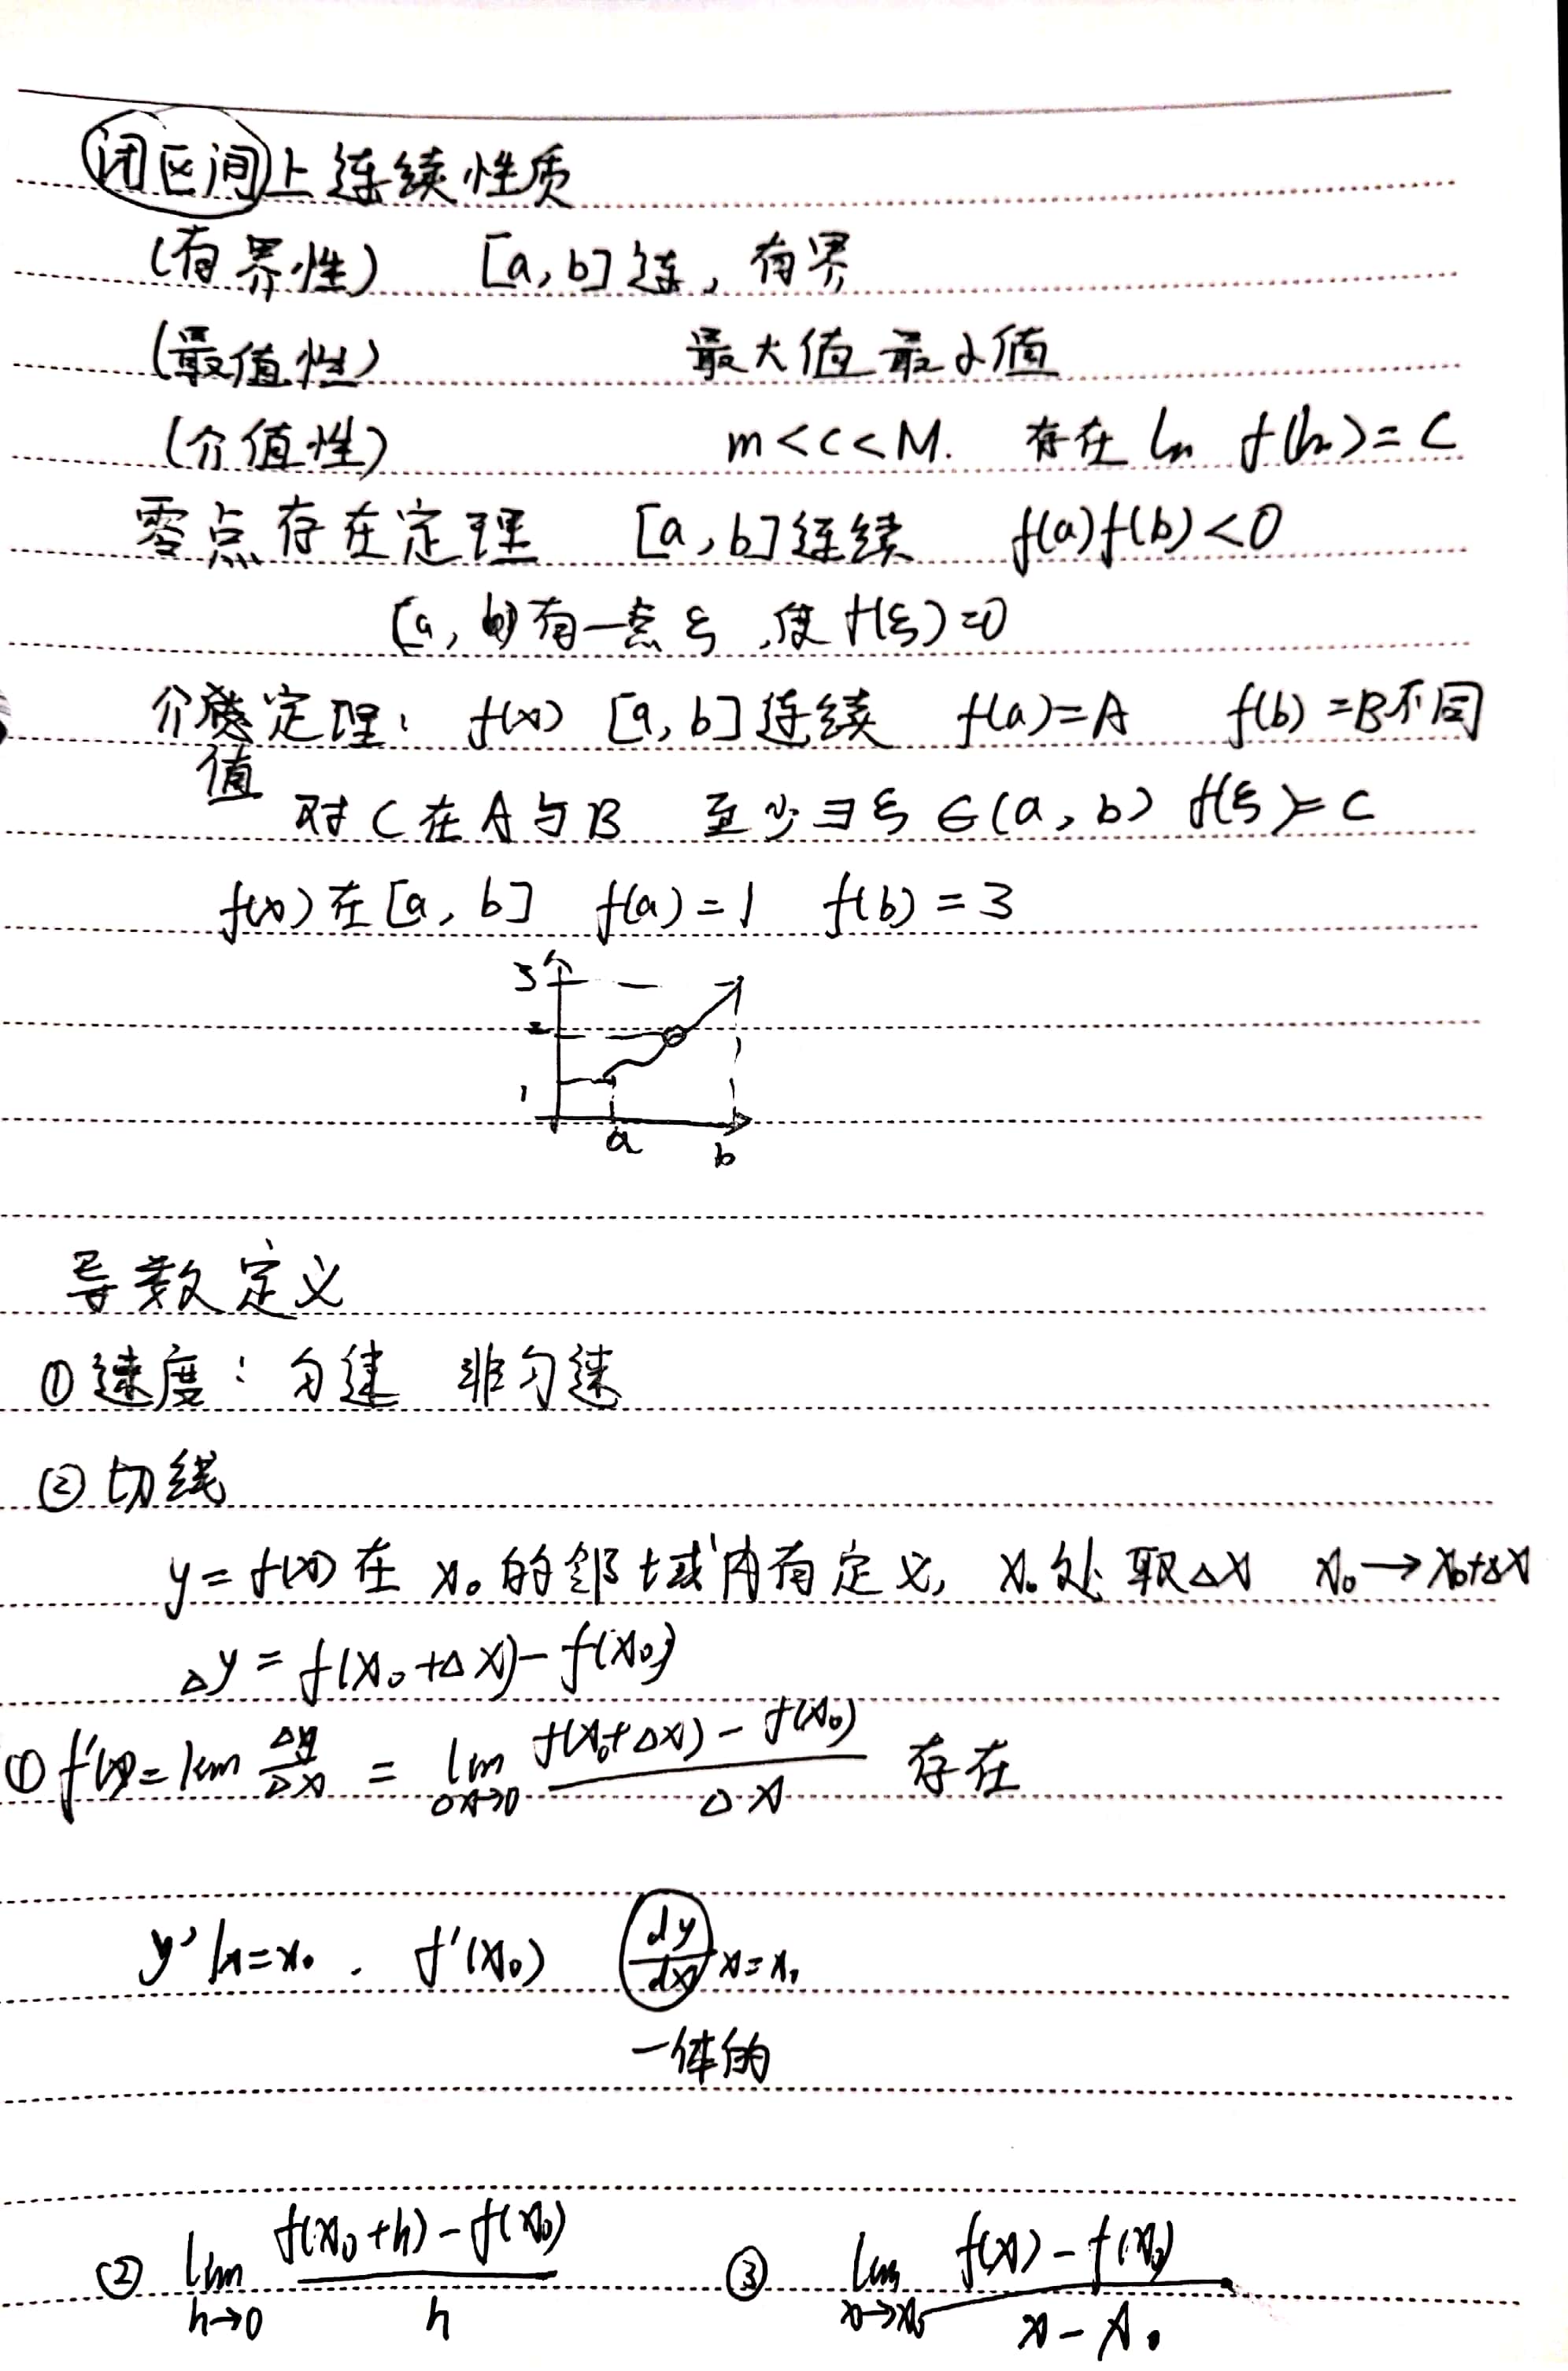 闭区间上连续性质
(有界性) [a,b]连,有界
(最值性) 最大值 最小值
(介值性) m<c<M. 存在 f( )=C
零点存在定理 [a,b]连续 f(a)f(b)<0
(a,b)有一点ξ,使f(ξ)=0
介 定理: f(x) [a,b]连续 f(a)=A f(b)=B不同
值
对C在A与B 至少∃ξ∈(a,b) f(ξ)=C
f(x)在[a,b] f(a)=1 f(b)=3
3
2
1
a b
导数定义
①速度:匀速 非匀速
②切线
y=f(x)在x₀的邻域内有定义,x₀处取△x x₀→x₀+△x
△y=f(x₀+△x)-f(x₀)
①f'(x)=lim △y/△x = lim △x→0 (f(x₀+△x)-f(x₀))/△x 存在
y'|x=x₀. f'(x₀) dy/dx x=x₀
一体的
② lim h→0 (f(x₀+h)-f(x₀))/h ③ lim x→x₀ (f(x)-f(x₀))/(x-x₀)